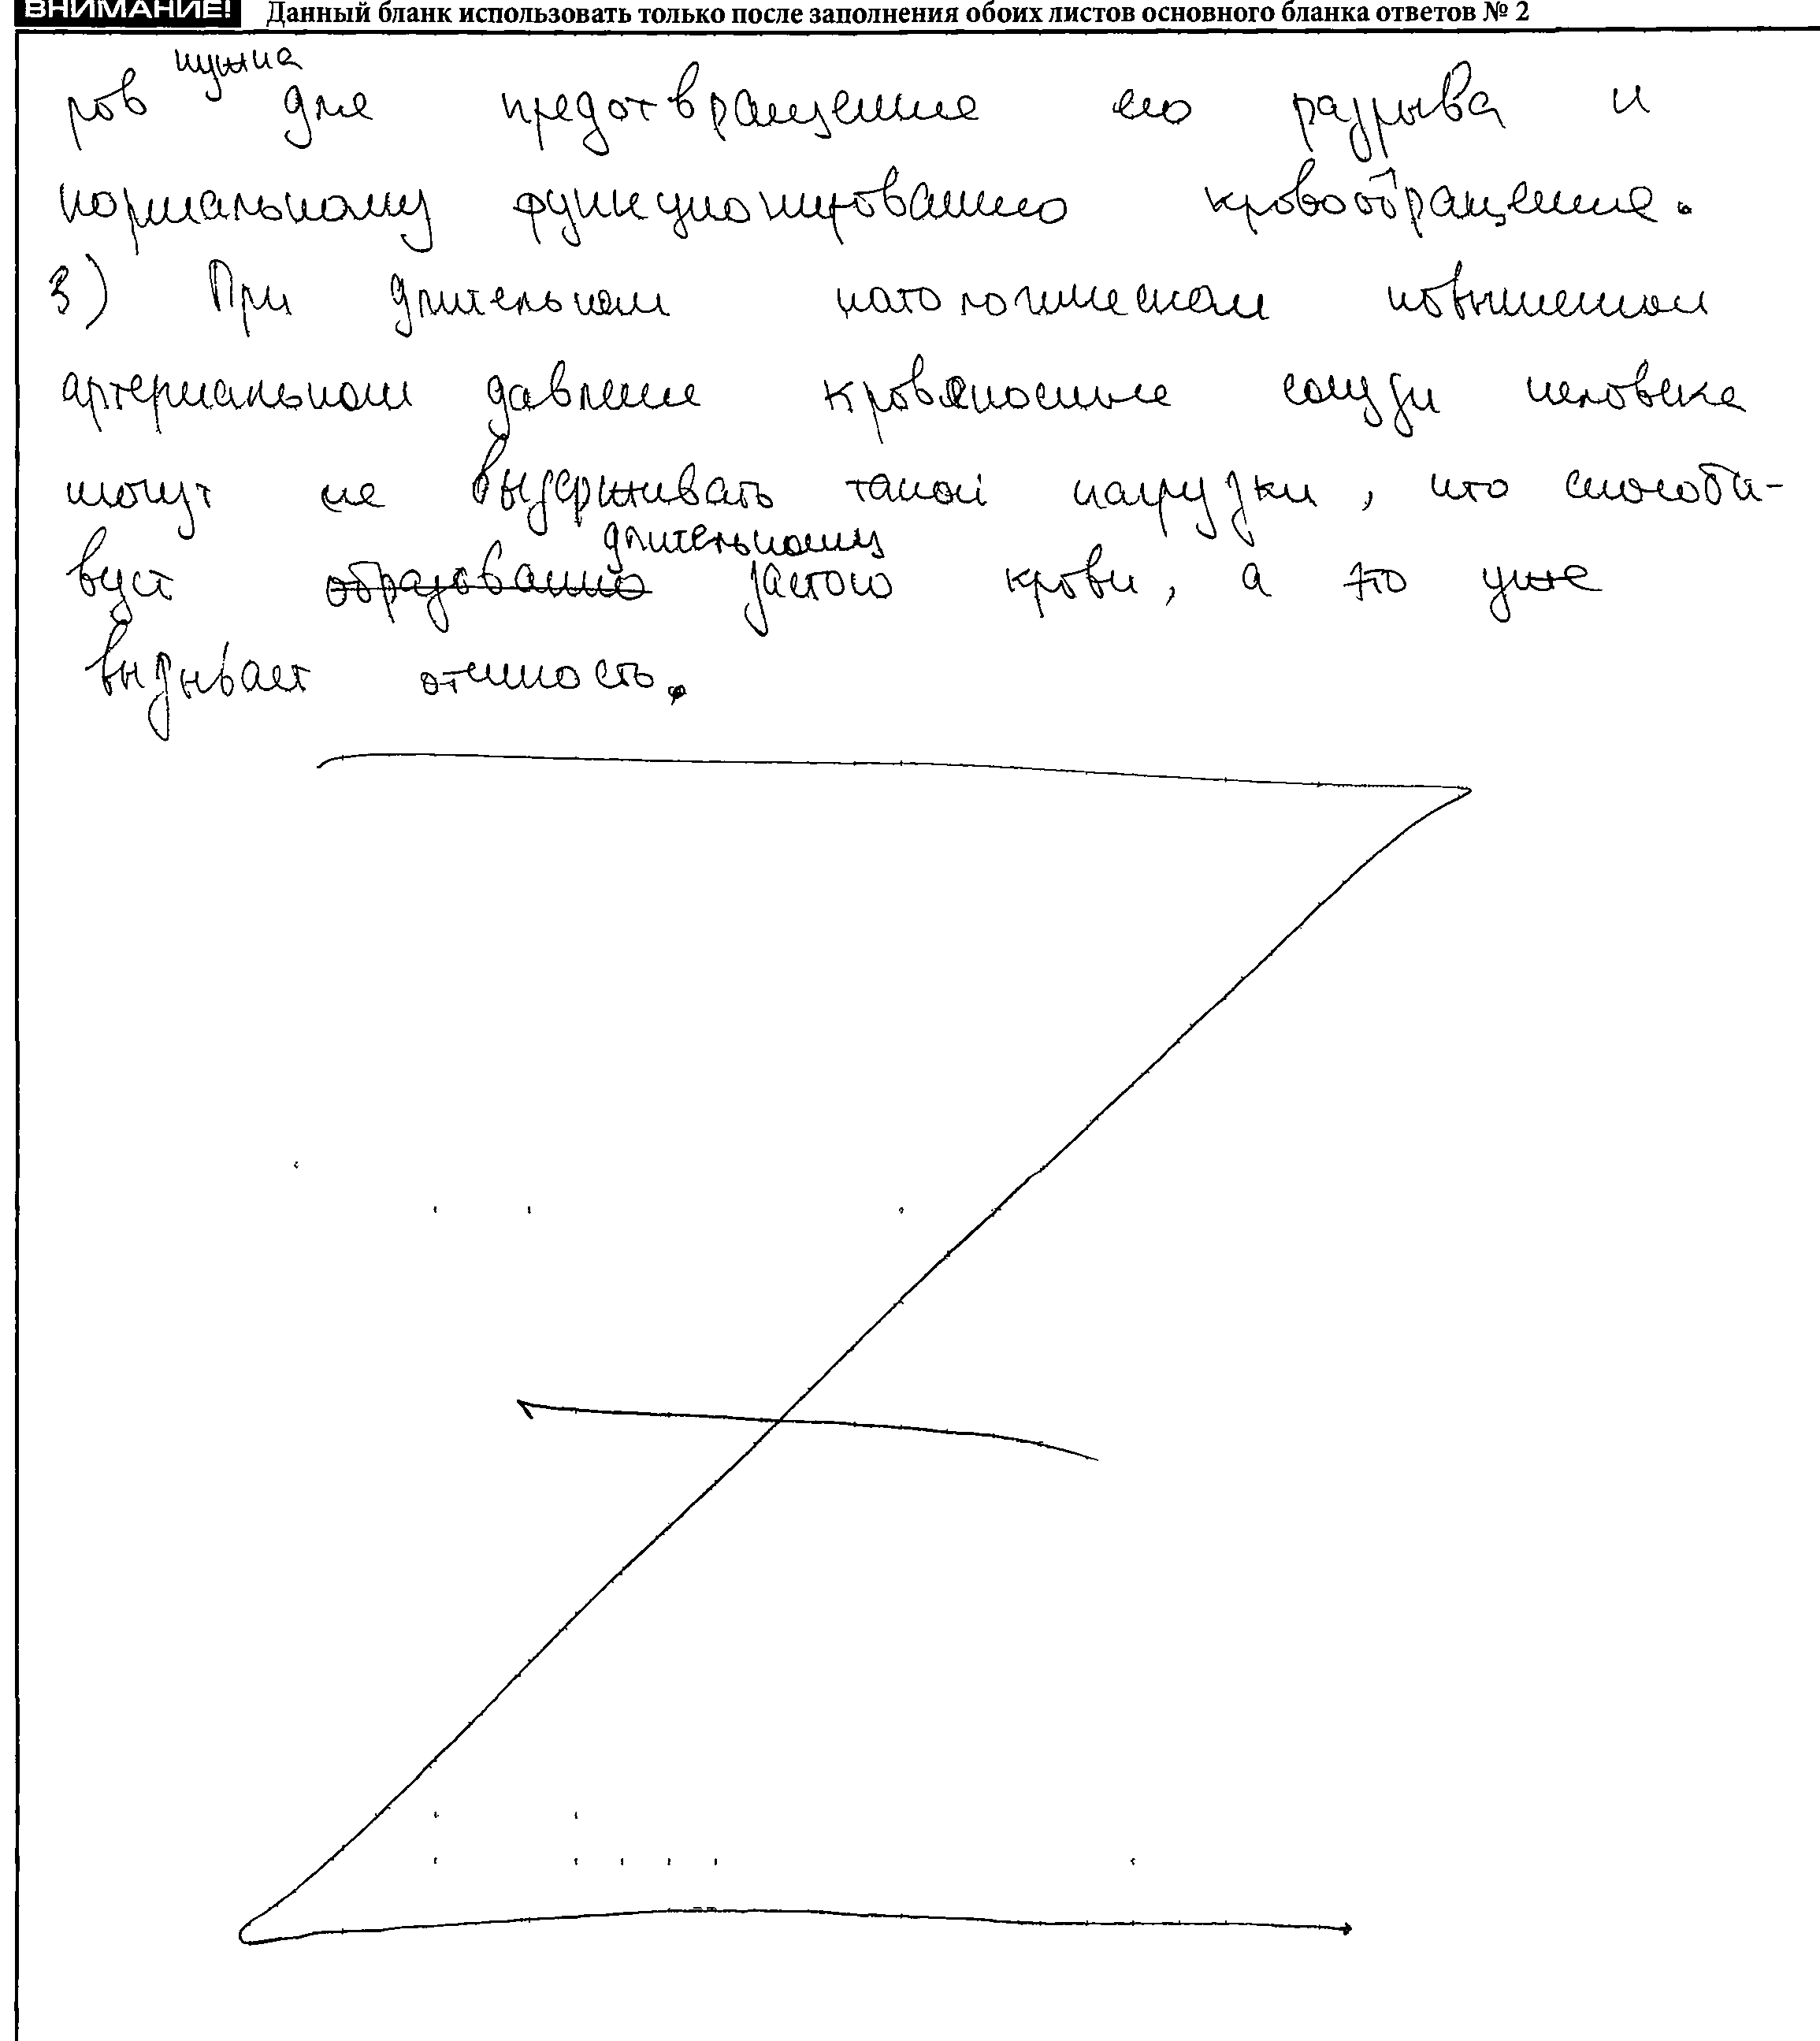 ВНИМАНИЕ! Данный бланк использовать только после заполнения обоих листов основного бланка ответов № 2
нужна
ров для предотвращение его разрыва и
нормальному функционированию кровообращение.
3) При длительном патологическом повышеном
артериальном давление кровяносные сосуды человека
могут не выдерживать такой нагрузки, что способст-
длительному
вует образованию застою крови, а это уже
вызывает отечность.